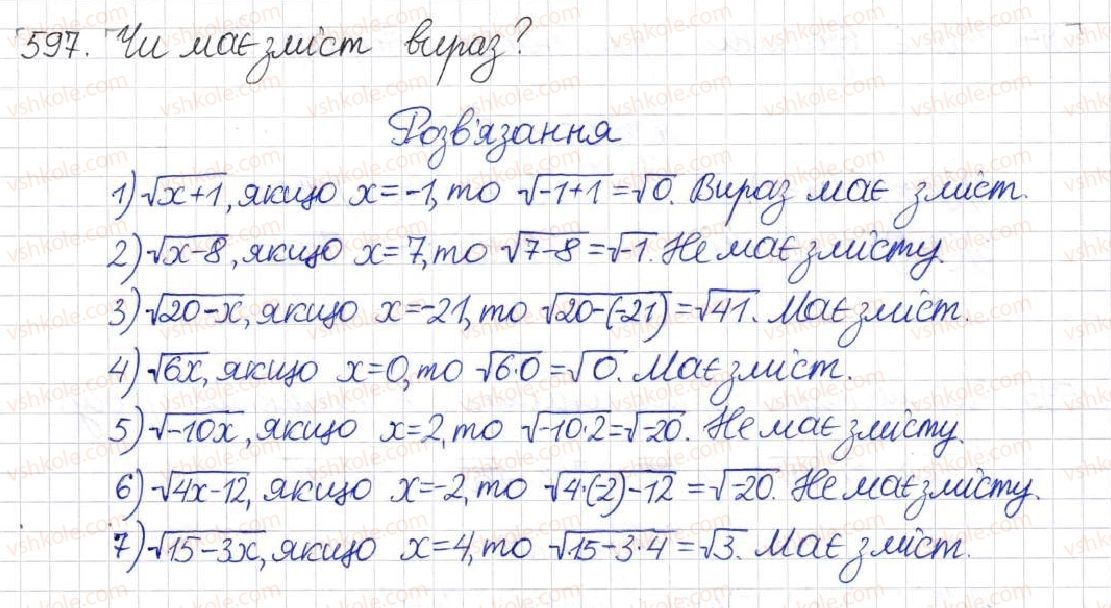 597. Чи має зміст вираз?
Розв'язання
1) √x+1, якщо x=-1, то √-1+1=√0. Вираз має зміст.
2) √x-8, якщо x=7, то √7-8=√-1. Не має змісту.
3) √20-x, якщо x=-21, то √20-(-21)=√41. Має зміст.
4) √6x, якщо x=0, то √6·0=√0. Має зміст.
5) √-10x, якщо x=2, то √-10·2=√-20. Не має змісту.
6) √4x-12, якщо x=-2, то √4·(-2)-12=√-20. Не має змісту.
7) √15-3x, якщо x=4, то √15-3·4=√3. Має зміст.